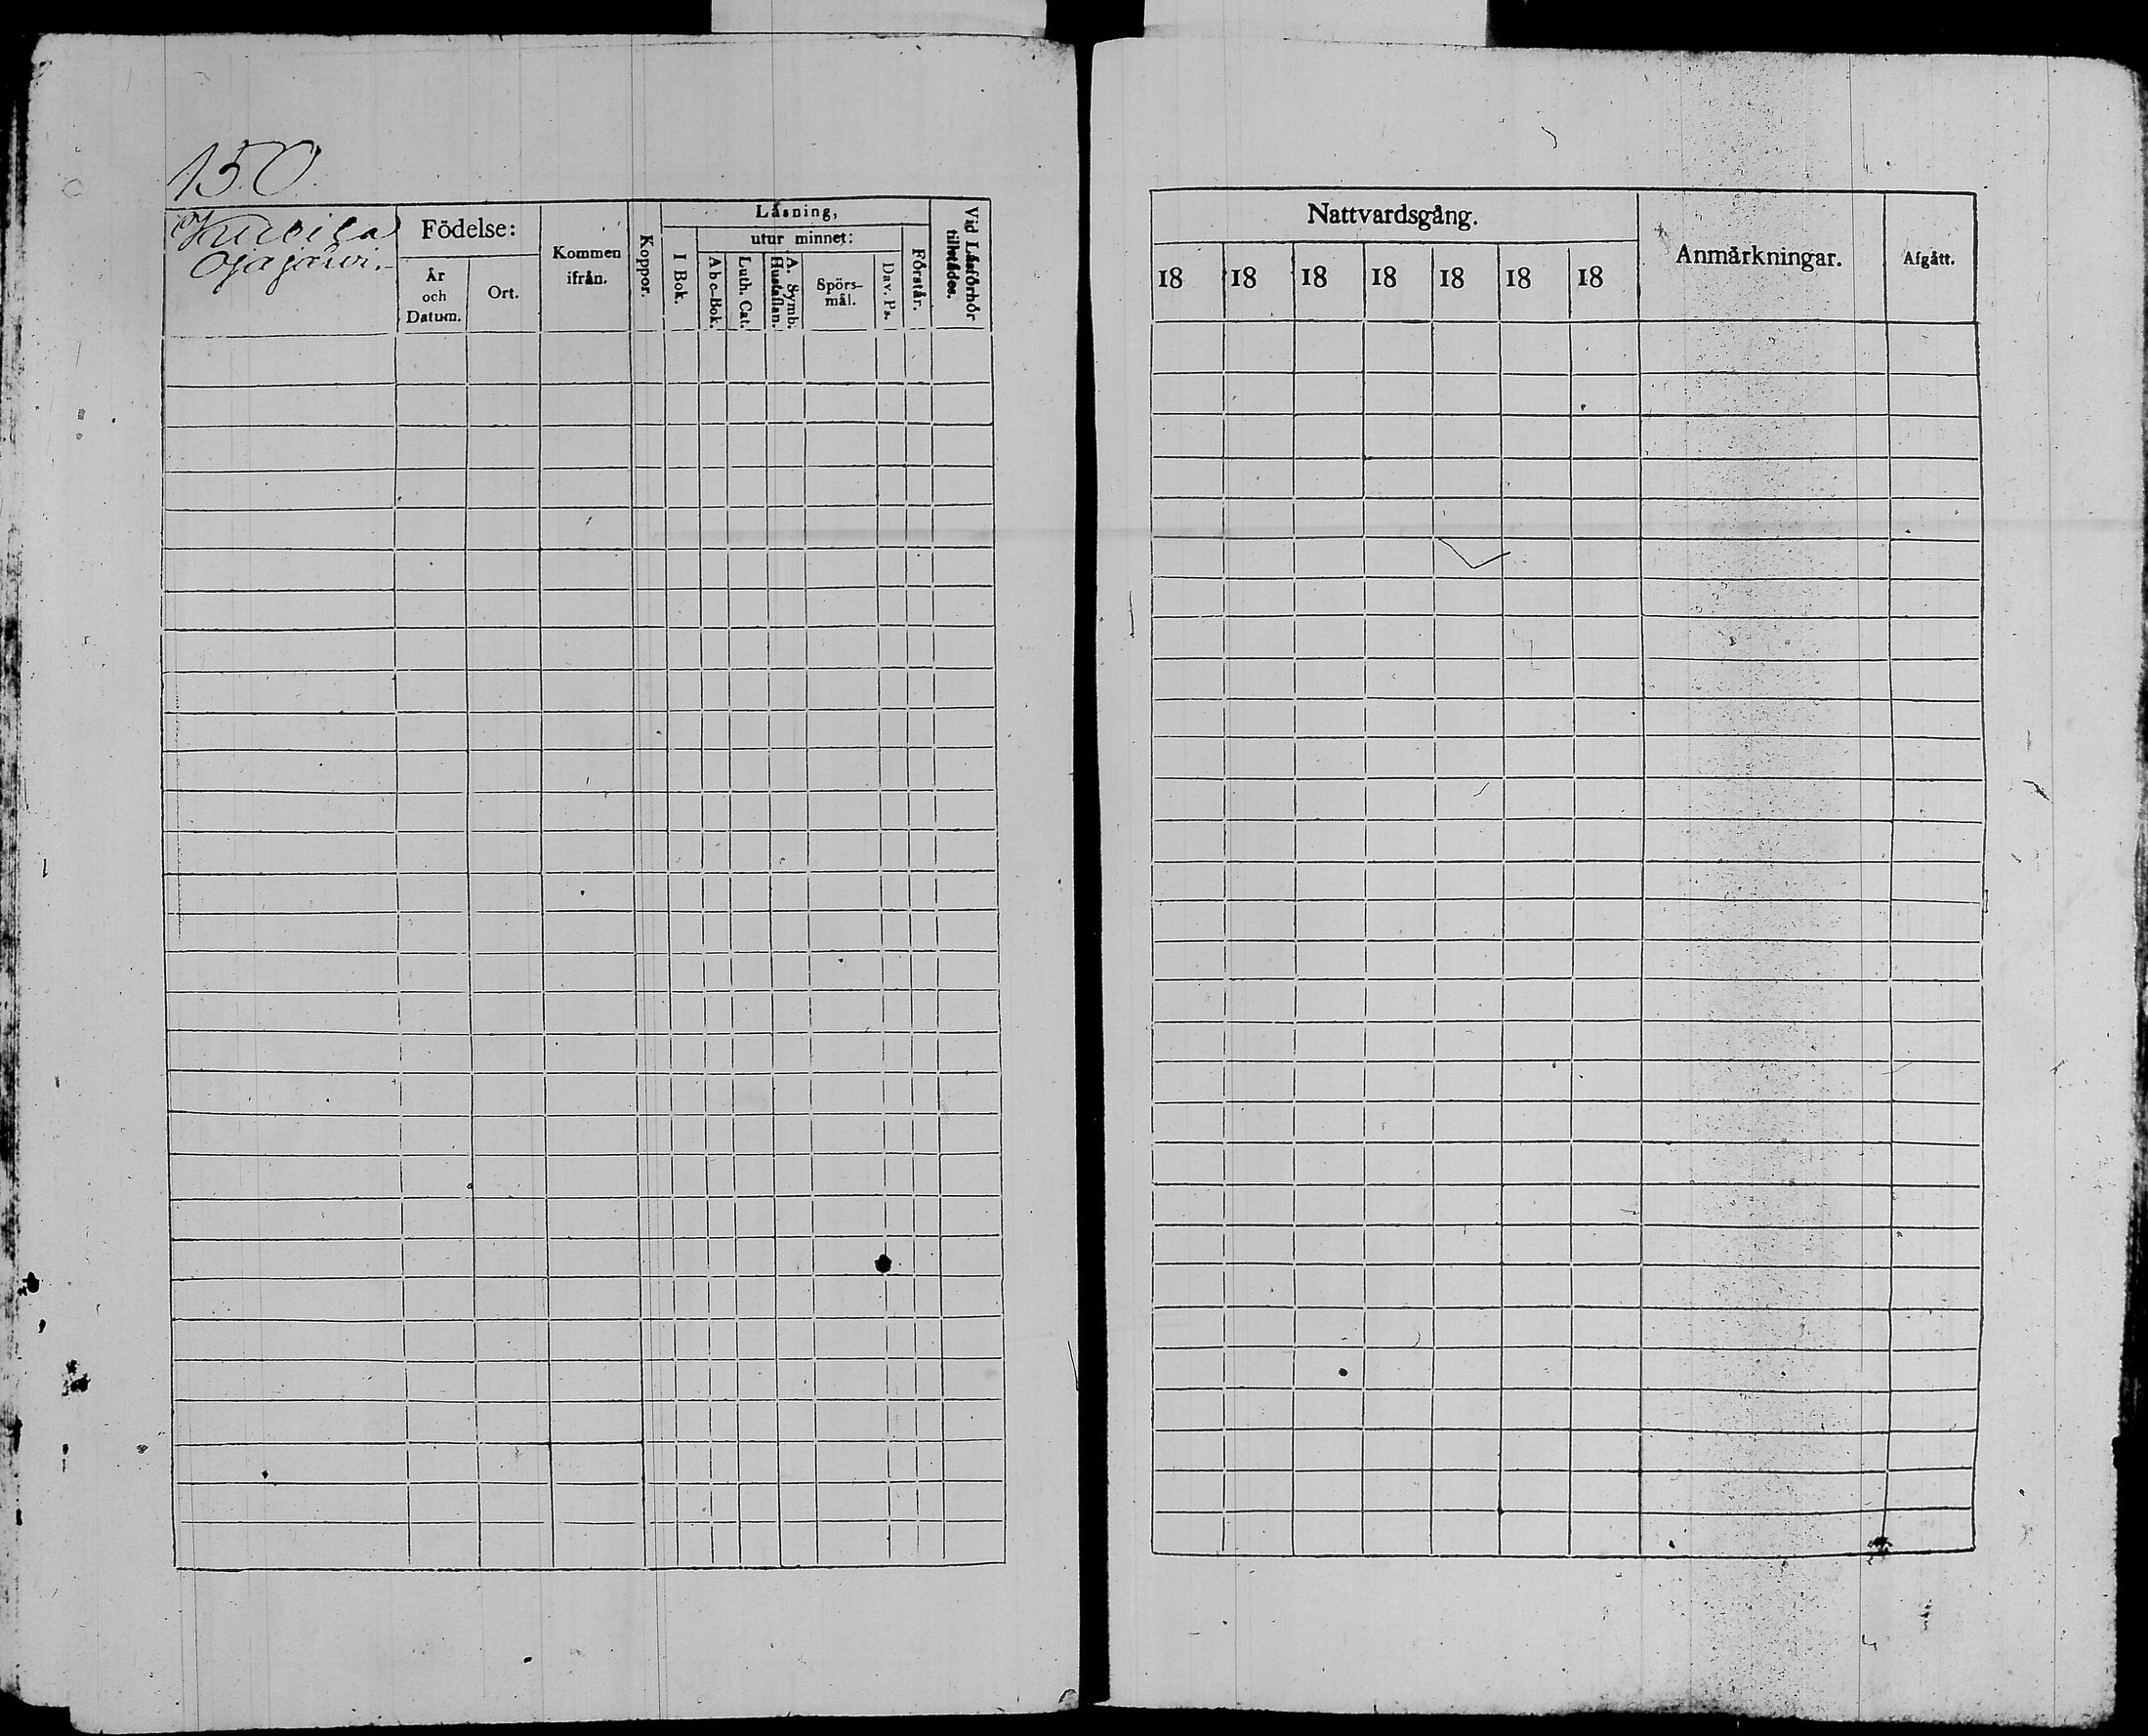 150.
Födelse:
År och Datum.
Ort.
Kommen ifrån.
Koppor.
Läsning,
I Bok.
utur minnet:
Abc-Bok.
Luth. Cat.
A. Symb. Hustaflan.
Spörs-mål.
Dav. Ps.
Förstår.
Vid Läsförhör tillstädes.
Nattvardsgång.
18 18 18 18 18 18 18
Anmärkningar.
Afgått.